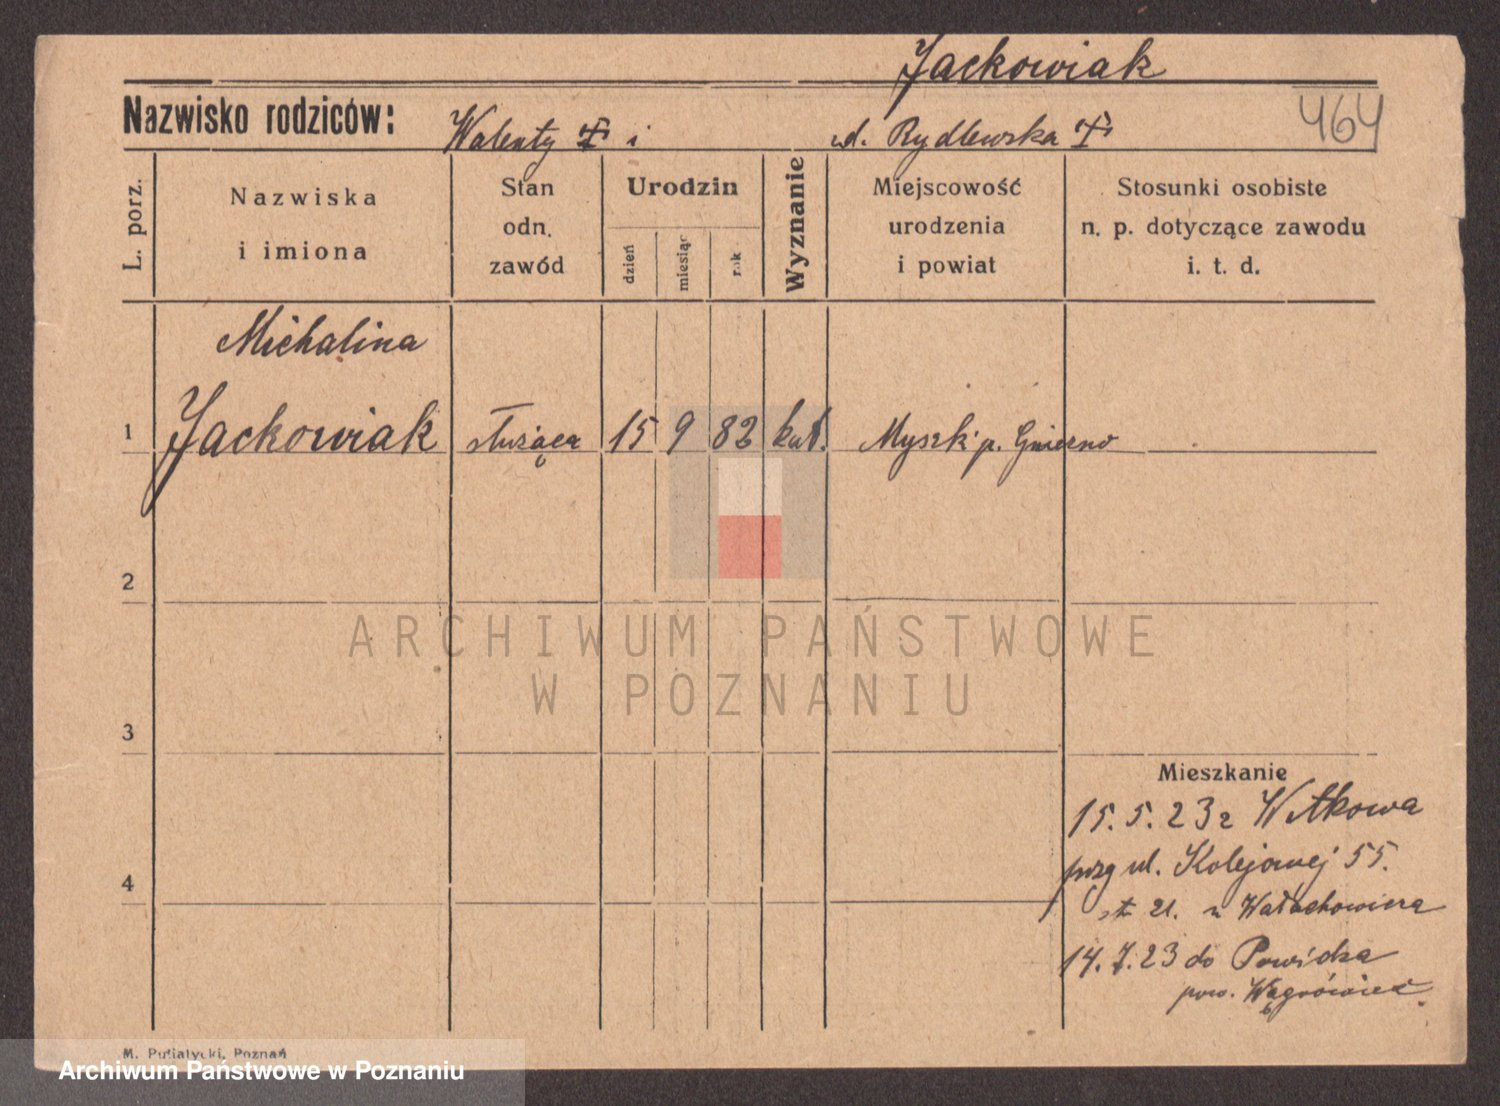 Jackowiak
Nazwisko rodziców: Walenty i d. Rydlewska
464
L. porz.
Nazwiska i imiona
Stan odn. zawód
Urodzin
dzień
miesiąc
rok
Wyznanie
Miejscowość urodzenia i powiat
Stosunki osobiste n. p. dotyczące zawodu i. t. d.
Michalina
1 Jackowiak służąca 15 9 82 kat. Myszki p. Gniezno
2
ARCHIWUM PAŃSTWOWE
W POZNANIU
3
Mieszkanie
15. 5. 23 z Witkowa
ul. Kolejowej 55.
21. u
4
14. 7. 23 do Powidza
pow. Wągrówiec.
M. Putiatycki, Poznań
Archiwum Państwowe w Poznaniu